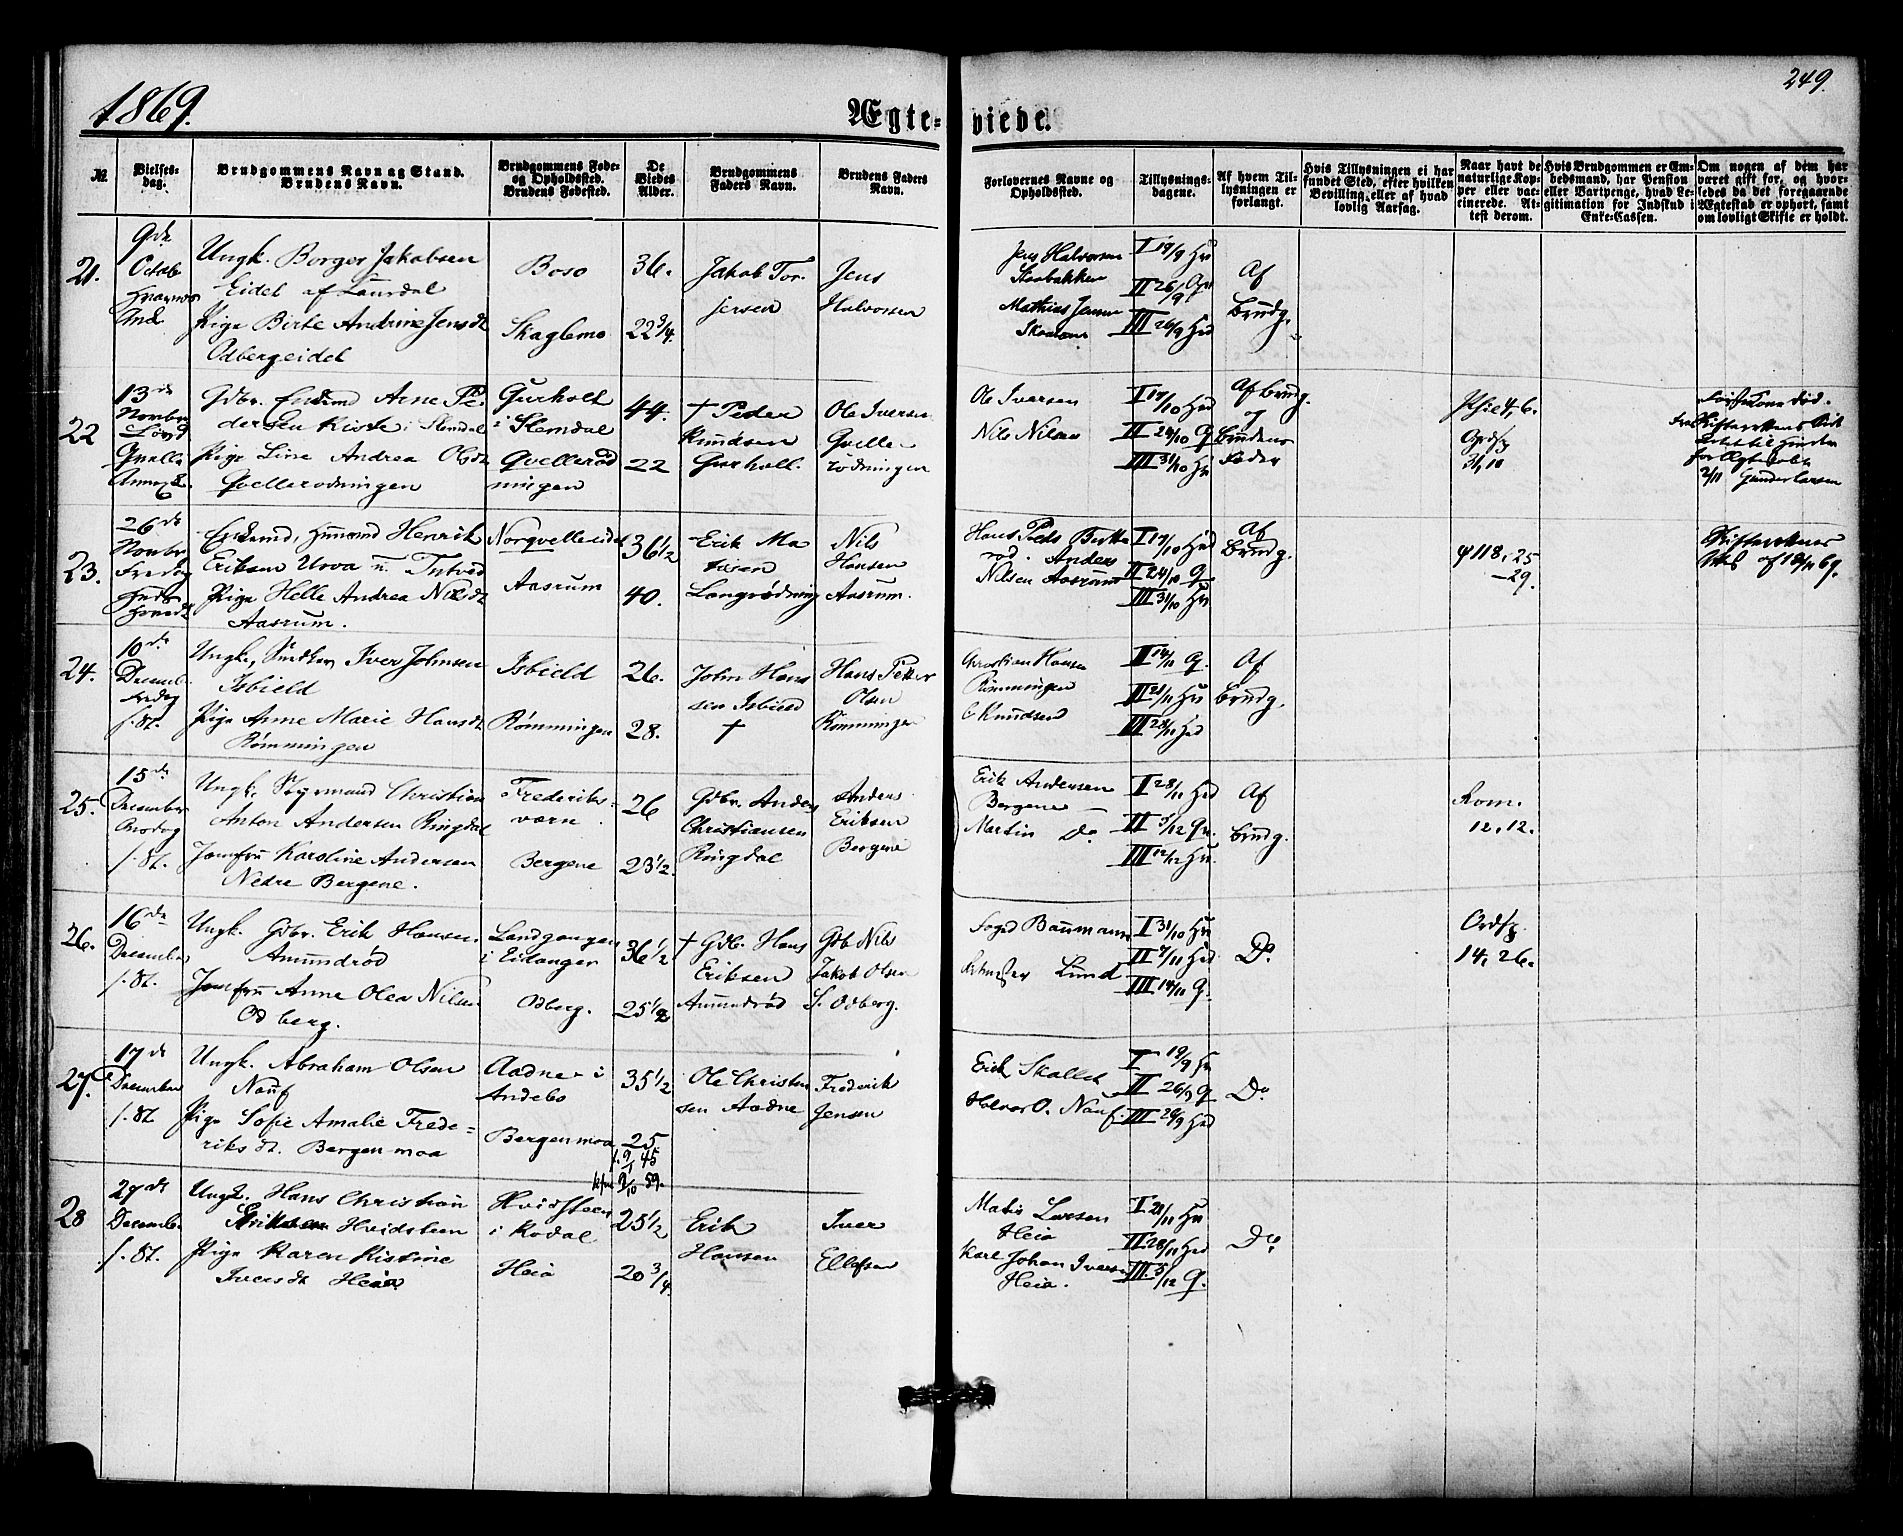 1869.
Ægte-viede.
249.
№
Vielses-dag.
Brudgommens Navn og Stand.
Brudens Navn.
Brudgommens Føde-
og Opholdssted.
Brudens Fødested.
De
Viedes
Alder.
Brudgommens
Faders Navn.
Brudens Faders
Navn.
Forlovernes Navne og
Opholdssted.
Tillysnings-
dagene.
Af hvem Til-
lysningen er
forlangt.
Hvis Tillysningen ei har
fundet Sted, efter hvilken
Bevilling eller af hvad
lovlig Aarsag.
Naar havt de
naturlige Kop-
per eller vac-
cinerede. At-
test derom.
Hvis Brudgommen er Em-
bedsmand, har Pension
eller Vartpenge, hvad Le-
gitimation for Indskud i
Enke-Cassen.
Om nogen af dem har
været gift før, og hvor-
ledes da det foregaaende
Ægteskab er ophørt, samt
om lovligt Skifte er holdt.
21.
9de
Octob
Ungk. Borger Jakobsen
Eidet af Laurdal
Pige Birte Andrine Jensdt
Odbergeidet
Boso
Skaglemo
36.
22 3/4.
Jakob Tor-
jersen
Jens
Halvorsen
Jens Halvorsen
Mathias Jensen
I 19/9 Hu
II 26/9
III 26/9 Hed
Af
Brudg.
22
13de
Novbr
Løverd
Qvelle
Annex K.
Gdbr. Enkemd Arne Pe-
dersen Kiste i Slemdal
Pige Line Andrea Olsdt
Qvellerødningen
Gurholt
i Slemdal
Qvellerød
ningen
44.
22
† Peder
Knudsen
Gurholt.
Ole Iversen
Qvelle-
rødningen
Ole Iversen
Nils Nilsen
I 17/10 Hed
II 24/10 Q
III 31/10 Hu
Af Brudg.
og
Brudens
Fader
31/10
2/11 Gunder Larsen
23.
26de
Novbr
Fredag
Enkemd, Husmd Henrik
Eriksen Urva u. Tutved
Pige Helle Andrea Nilsdt
Aasrum.
Norqvelleeidet
Aasrum
36 1/2
40.
Erik Ma
tisen
Langrødning
Nils
Hansen
Aasrum.
Hans Peds Berke
rød. Anders
Nilsen Aasrum
I 17/10 Hed
II 24/10 Q
III 31/10 Hu
Af
Brudg.
118, 25
— 29.
24.
10de
Decemb.
Fredag
s. St.
Ungk. Snedker Iver Johnsen
Isbield
Pige Anne Marie Hansdt
Rømmingen
Isbield
Rømmingen
26.
28.
John Han
sen Isbield
†
Hans Petter
Olsen
Rømmingen
Christian Hansen
Rømmingen
C Knudsen
I 14/11 Q.
II 21/11 Hu
III 28/11 Hed
Af
Brudg.
25.
15de
December
Onsdag
s. St.
Ungk. Styrmand Christian
Anton Andersen Ringdal
Jomfru Karoline Andersen
Nedre Bergene.
Frederiks-
værn
Bergene
26
23 1/2.
Gdbr. Anders
Christiansen
Ringdal
Anders
Eriksen
Bergene
Erik Andersen
Bergene
Martin Do
I 28/11 Hed
II 5/12 Qv.
III 12/12 Hu.
Af
Brudg.
Kom.
12, 12.
26.
16de
December
s. St.
Ungk. Gdbr. Erik Hansen.
Amundrød
Jomfru Anne Olea Nilsen
Odberg.
Landgangen
i Eidanger
Odberg.
36 1/2
25 1/2
† Gdb. Hans
Eriksen
Amundrød
Gdb Nils
Jakob Olsen
S. Odberg.
Foged Baumann
Lund
I 31/10 Hu
II 7/11 Hed
III 14/11 Q.
Do
14, 26.
27.
17de
December
s. St
Ungk. Abraham Olsen
Nauf
Pige Sofie Amalie Frede-
riksdt. Bergenmoa
Aadne i
Andebo
Bergenmoa
35 1/2
25
f. 9/1 45
kfm 9/10 59.
Ole Christen
sen Aadne
Frederik
Jensen
Erik Skallet
Halvor O. Nauf.
I 19/9 Hu
II 26/9 Q
III 26/9 Hed
Do
28
29de
December
s. St.
Ungk. Hans Christian
Eriksen Hvidsteen
Pige Karen Kistine
Iversdt Heia
Hvidsteen
i Kodal
Heia
25 1/2
20 3/4.
Erik
Hansen
Iver
Ellefsen
Matis Larsen
Heia
Karl Johan Iversen
Heia.
I 21/11 Hu
II 28/11 Hed
III 5/12 Q.
Do